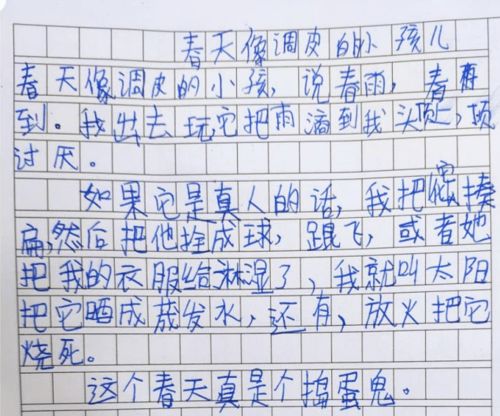 春天像调皮的小孩儿
春天像调皮的小孩,说春雨,春雨
到。我出去玩它把雨滴到我头上,烦
讨厌。
如果它是真人的话,我把它揍
扁,然后把他拴成球,踢飞,或者她
把我的衣服给淋湿了,我就叫太阳
把它晒成蒸发水,还有,放火把它
烧死。
这个春天真是个捣蛋鬼。